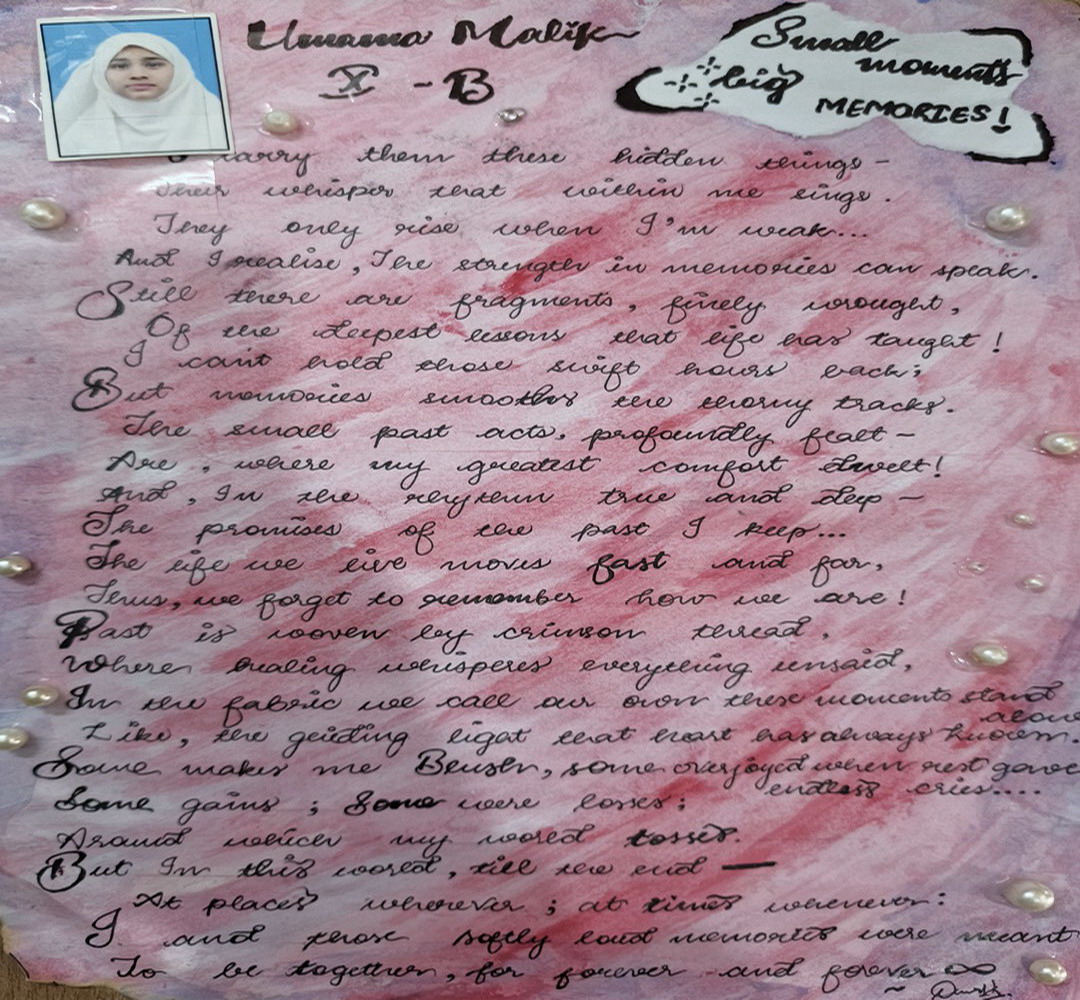 Umama Malik
X - B
Small
moments
big
MEMORIES!
I carry them these hidden things -
Their whisper that within me sings.
They only rise when I'm weak...
And I realise, The strength in memories can speak.
Still there are fragments, finely wrought,
Of the deepest lessons that life has taught!
I can't hold those swift hours back;
But memories smooths the thorny tracks.
The small past acts, profoundly fealt -
Are, where my greatest comfort dwelt!
And, In the rhythm true and deep -
The promises of the past I keep...
The life we live moves fast and far,
Thus, we forget to remember how we are!
Past is woven by crimson thread,
Where healing whisperes everything unsaid,
In the fabric we call our own these moments stand
alone
Like, the guiding light that heart has always known.
Some makes me Blush, some overjoyed when rest gave
endless cries....
Some gains ; Some were losses;
Around which my world tosses.
But In this world, till the end —
At places wherever ; at times whenever:
I and those softly loud memories were meant
To be together, for forever and forever ∞